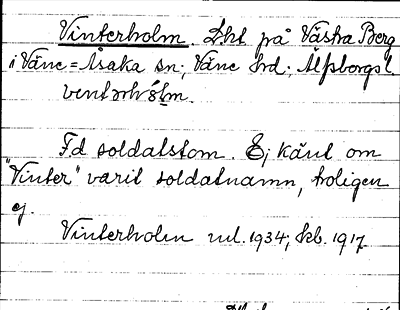 Vinterholm. Lht på Västra Berg
i Väne-Åsaka sn; Väne hd; Älfsborgs l.
ventərhólm.
Fd soldatstom. Ej känt om
"Vinter" varit soldatnamn, troligen
ej.
Vinterholm ml. 1934; kb. 1917